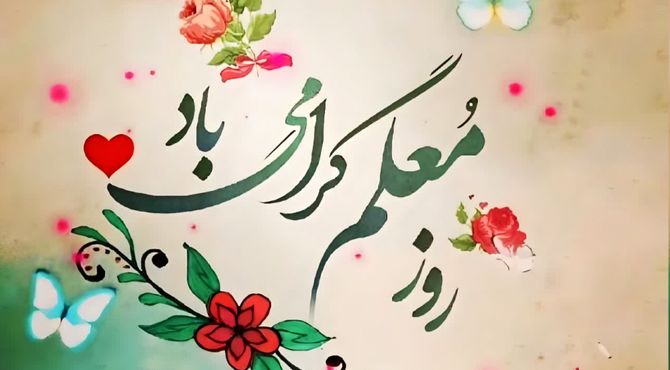 روز معلم گرامی باد